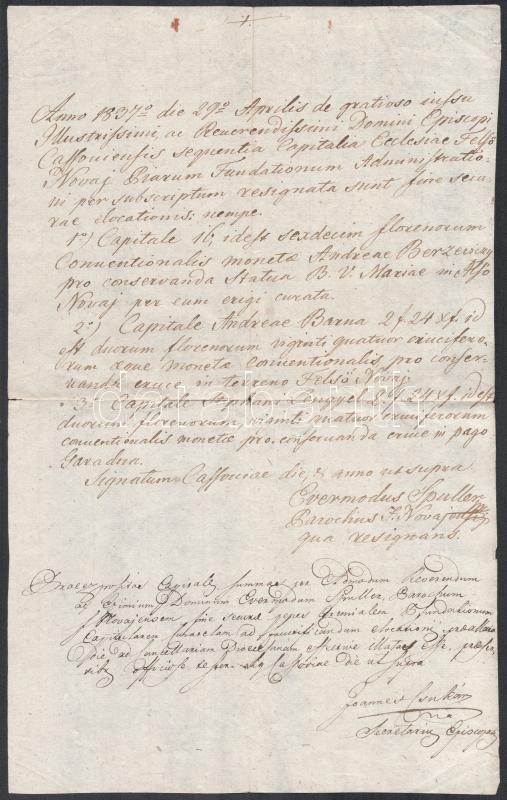 Anno 1837º die 29º Aprilis de gratioso iussu
Illustrissimi, ac Reuerendissimi Domini Episcopi
Cassouiensis sequentia Capitalia Ecclesiae Felsö
Novaj Piarum Fundationum Administratio-
ni per subscriptum resignata sunt fine secu-
rae elocationis; nempe.
1º) Capitale 16, idest sexdecim florenorum
Conuentionalis monetae Andreae Berzeviczy
pro conservanda Statua B. V. Mariae in Alsó
Novaj per eum erigi curata.
2º) Capitale Andreae Barna 2 f. 24 xf. id
est duorum florenorum viginti quatuor crucifero-
rum aeque monetae conventionalis pro conser-
vanda cruce in terreno Felsö Novaj.
3º) Capitale Stephani Lengyel 2 f. 24 xf. idest
duorum florenorum viginti quatuor cruciferorum
conventionalis monetae pro conseruanda cruce in pago
Garadna.
Signatum Cassouiae die, & anno ut supra
Evermodus Spuller
Parochus F. Novaj
qua resignans.
Praeexpositas Capitales summas per Admodum Reverendum
ac Eximium Dominum Evermodum Spuller, Parochum
F. Novajensem fine securae Fundationum
Capitalium ad elocationem
die ad cancellariam Dioecesanam esse,
officiose Cassoviae die ut supra
Joannes Csukás
Secretarius Episcopalis
darabanth